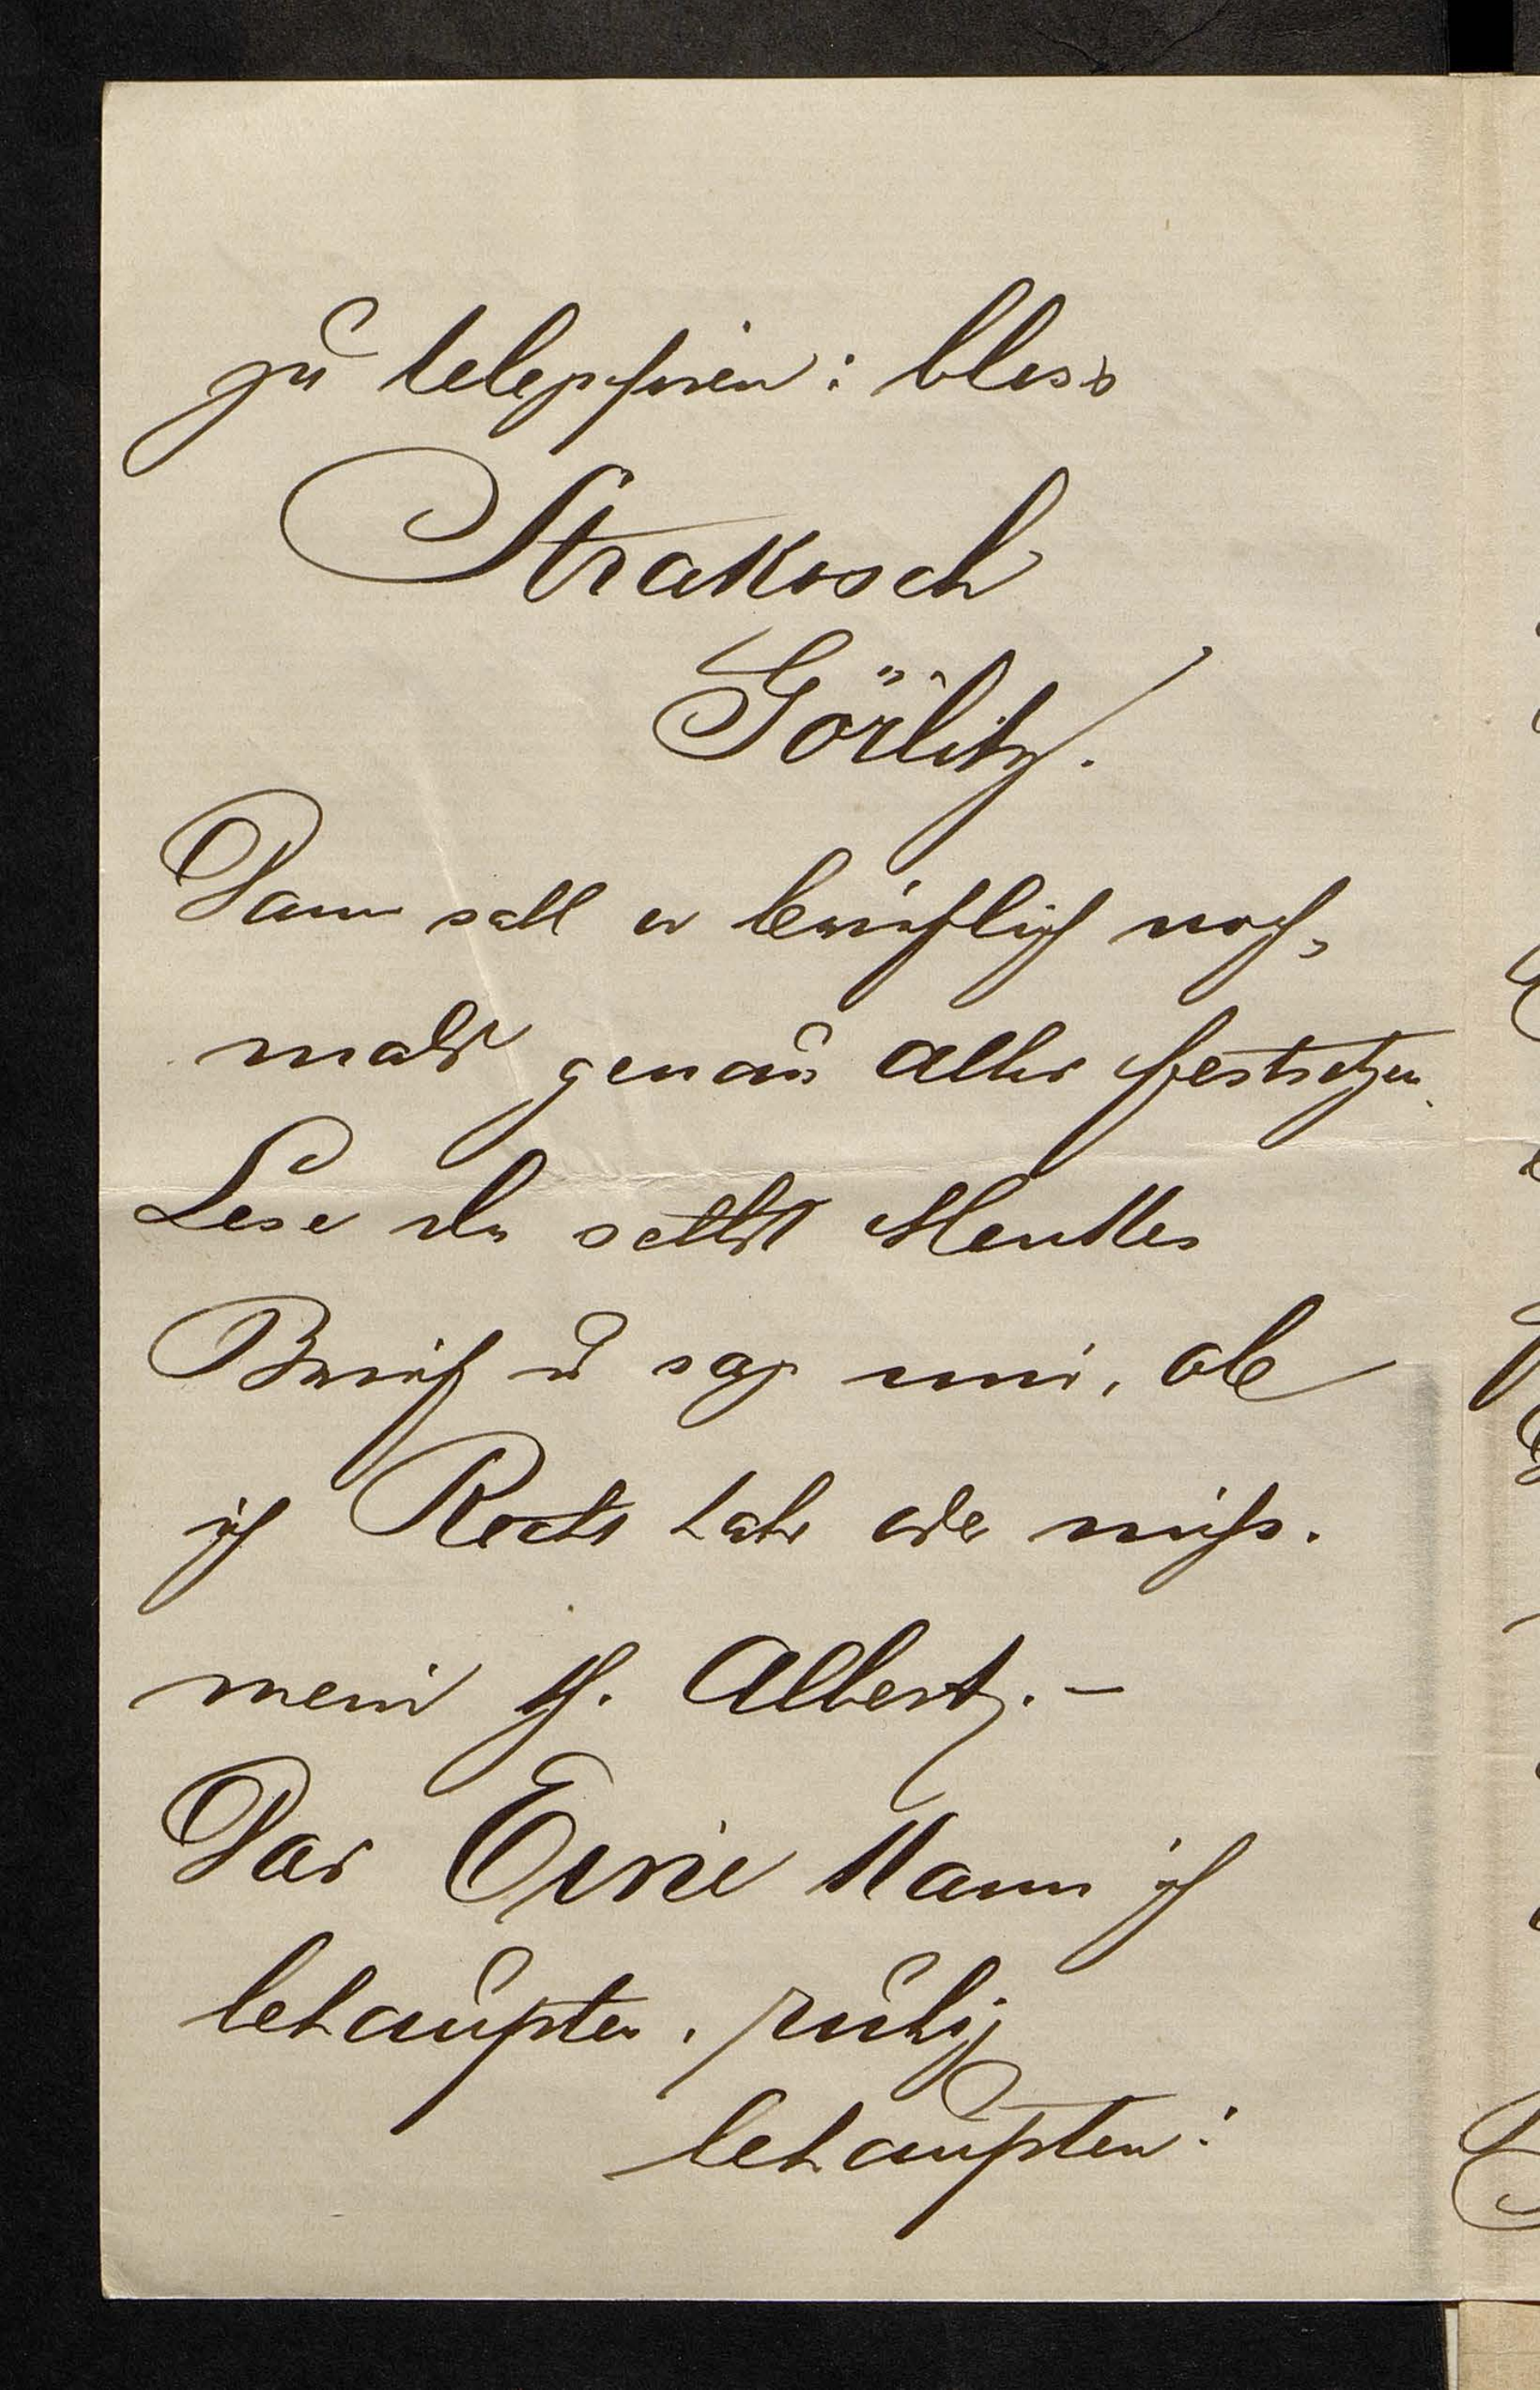 zu telephiren: bloss
Strakosch
Görlitz.
Dann soll er brieflich noch-
mals genau alles festsetzen.
Lese du selbst Menkes
Brief u sage mir, ob
ich Recht habe oder nicht.
mein th. Albert. –
Das Eine kann ich
behaupten, ruhig
behaupten: